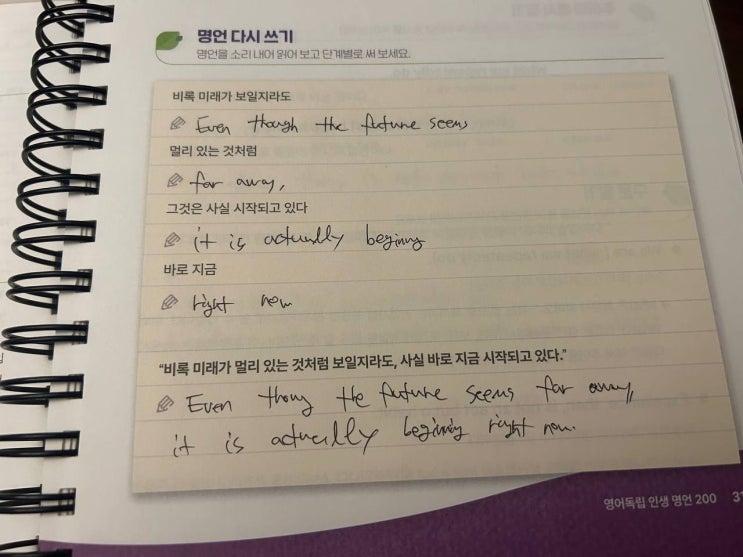 명언 다시 쓰기
명언을 소리 내어 읽어 보고 단계별로 써 보세요.
비록 미래가 보일지라도
Even though the future seems
멀리 있는 것처럼
far away,
그것은 사실 시작되고 있다
it is actually beginning
바로 지금
right now
“비록 미래가 멀리 있는 것처럼 보일지라도, 사실 바로 지금 시작되고 있다.”
Even thoug the future seems far away,
it is actually beginning right now.
영어독립 인생 명언 200 31